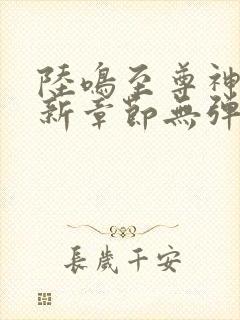 陸鳴至尊神
新章節無彈
長歲千安